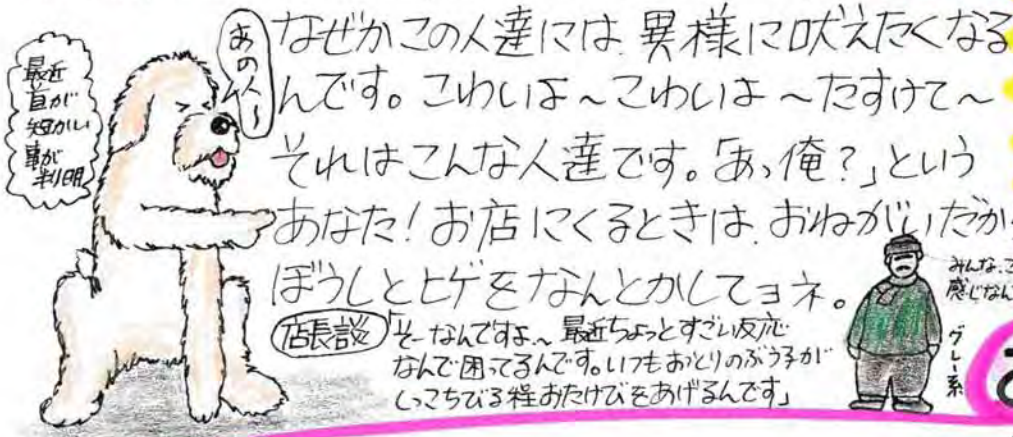 最近
首が
短かい
事が
判明
あの人〜
なぜかこの人達には、異様に吠えたくなる
んです。こわいよ〜こわいよ〜たすけて〜
それはこんな人達です。「あっ俺？」という
あなた！お店にくるときは、おねがいだから
ぼうしとヒゲをなんとかしてヨネ。
店長談「そーなんですよ〜最近ちょっとすごい反応
なんで困ってるんです。いつもおっとりのぶう子が
しっこちびる程おたけびをあげるんです」
みんな、こ
感じなん
グレー系